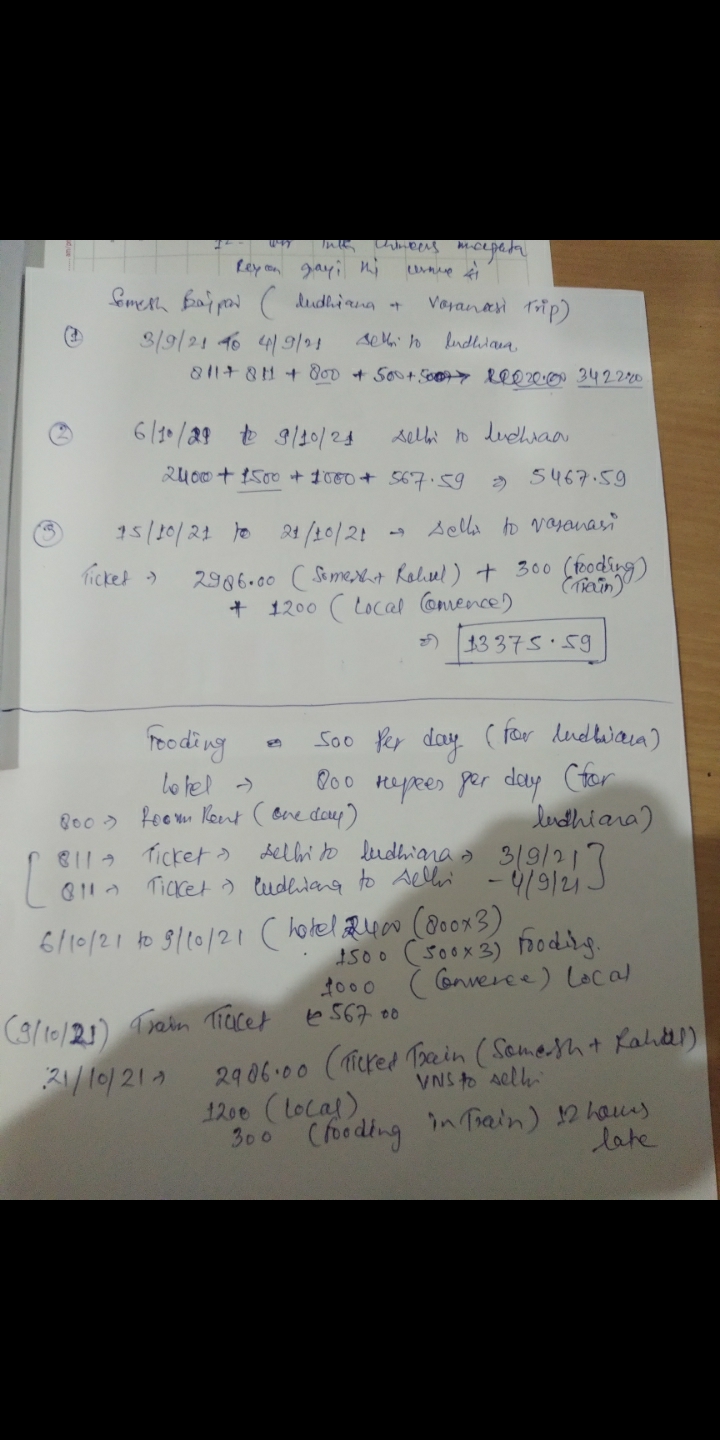 Somesh Bajpai ( ludhiana + Varanasi Trip)
① 3/9/21 to 4/9/21 Delhi to ludhiana
811 + 811 + 800 + 500+500 → 3422.00
② 6/10/21 to 9/10/21 Delhi to ludhian
2400 + 1500 + 1000 + 567.59 ⇒ 5467.59
③ 15/10/21 to 21/10/21 → Delhi to varanasi
Ticket → 2986.00 ( Somesh + Rahul ) + 300 (fooding)
(Train)
+ 1200 ( Local Convence)
⇒ 13375.59
Fooding = 500 Per day ( for ludhiana)
hotel → 800 rupees per day (for
ludhiana)
800 → Room Rent ( one day)
811 → Ticket → Delhi to ludhiana → 3/9/21
811 → Ticket → ludhiana to Delhi - 4/9/21
6/10/21 to 9/10/21 ( hotel 2400 (800x3)
1500 ( 500x3) fooding.
1000 ( Convence) Local
(9/10/21) Train Ticket 567.00
21/10/21 → 2986.00 ( Ticket Train ( Somesh + Rahul)
VNS to Delhi
1200 ( Local)
300 ( fooding in Train) 12 hours
late